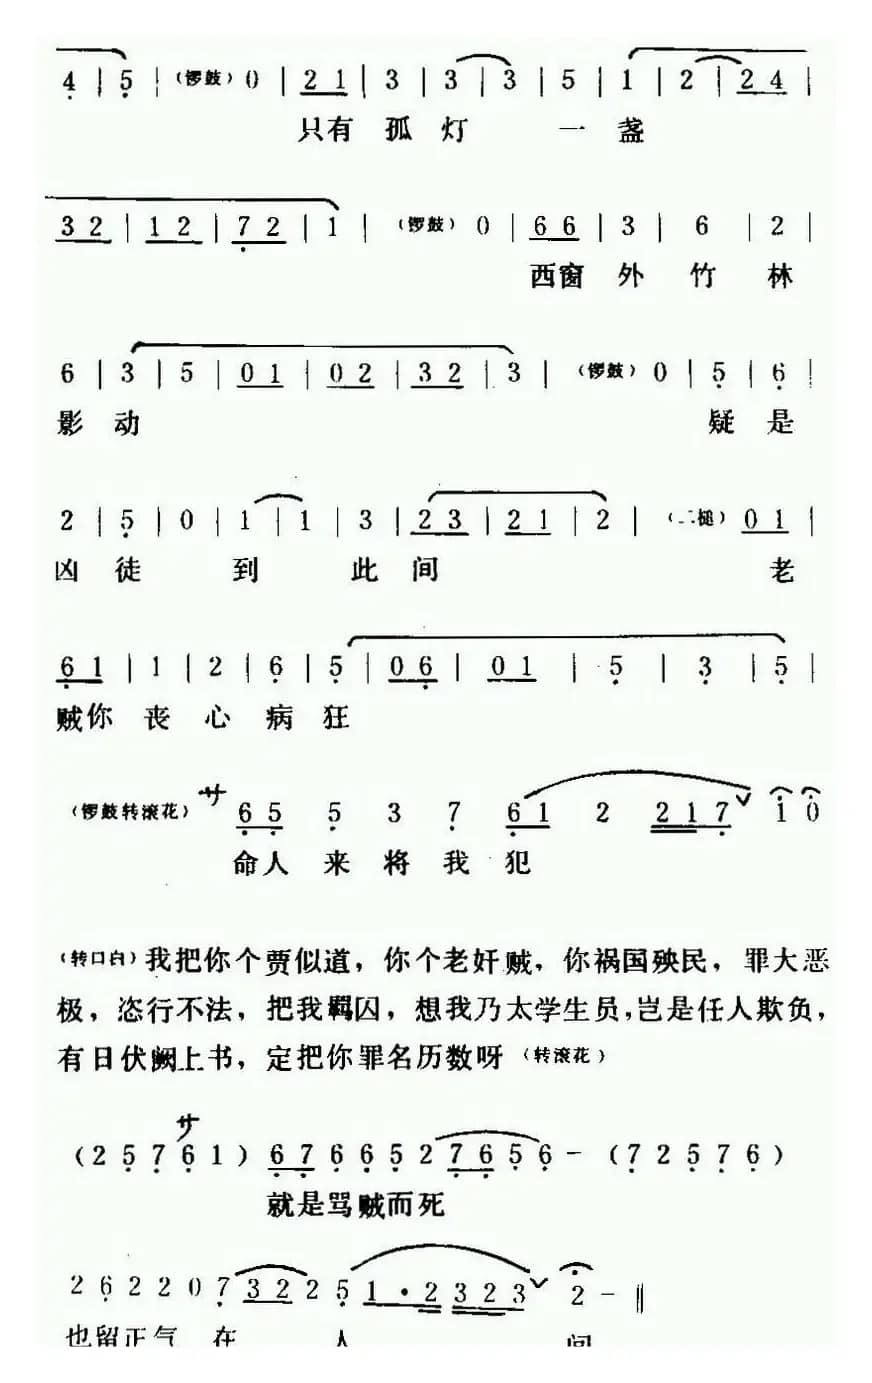 4 | 5 | （锣鼓）0 | 21 | 3 | 3 | 3 | 5 | 1 | 2 | 24 |
只有 孤 灯 一 盏
32 | 12 | 72 | 1 | （锣鼓）0 | 66 | 3 | 6 | 2 |
西窗 外 竹 林
6 | 3 | 5 | 01 | 02 | 32 | 3 | （锣鼓）0 | 5 | 6 |
影 动 疑 是
2 | 5 | 0 | 1 | 1 | 3 | 23 | 21 | 2 | （二槌）01 |
凶 徒 到 此 间 老
61 | 1 | 2 | 6 | 5 | 06 | 01 | 5 | 3 | 5 |
贼你 丧 心 病 狂
（锣鼓转滚花）サ 65 5 3 7 61 2 217 1 0
命人 来 将 我 犯
（转口白）我把你个贾似道，你个老奸贼，你祸国殃民，罪大恶
极，恣行不法，把我羁囚，想我乃太学生员，岂是任人欺负，
有日伏阙上书，定把你罪名历数呀（转滚花）
サ
（25761）6766527656－（72576）
就是骂贼而死
26220732251·23232－‖
也留正气 在 人 间